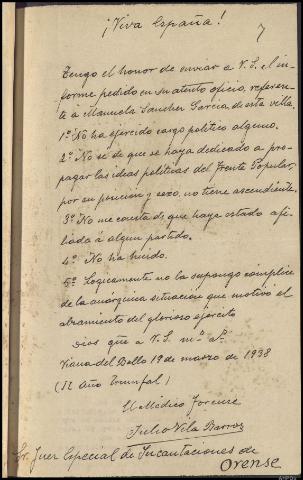 ¡Viva España!
7
Tengo el honor de enviar a V. S. el in-
forme pedido en su atento oficio, referen-
te á Manuela Sanchez Garcia, de esta villa.
1º No ha ejercido cargo político alguno.
2º No se de que se haya dedicado a pro-
pagar las ideas políticas del Frente Popular,
por su posición y sexo, no tiene ascendiente.
3º No me consta de que haya estado afi-
liada á algun partido.
4º No ha huido.
5º Logicamente no la supongo cómplice
de la anárquica situación que motivó el
alzamiento del glorioso ejército
Dios gue a V. S. mº aº
Viana del Bollo 19 de marzo de 1938
(II Año Triunfal)
El Médico Forense
Julio Vila Barros
Sr. Juez Especial de Incautaciones de
Orense